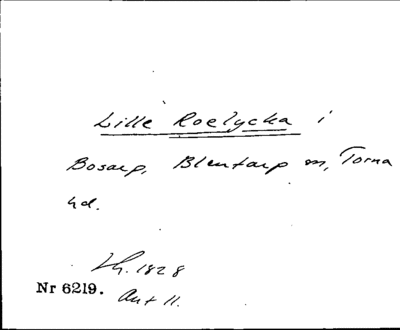 Lille Roelycka i
Bosarp, Blentarp sn, Torna
hd.
Lh. 1828
Nr 6219.
Ant 11.